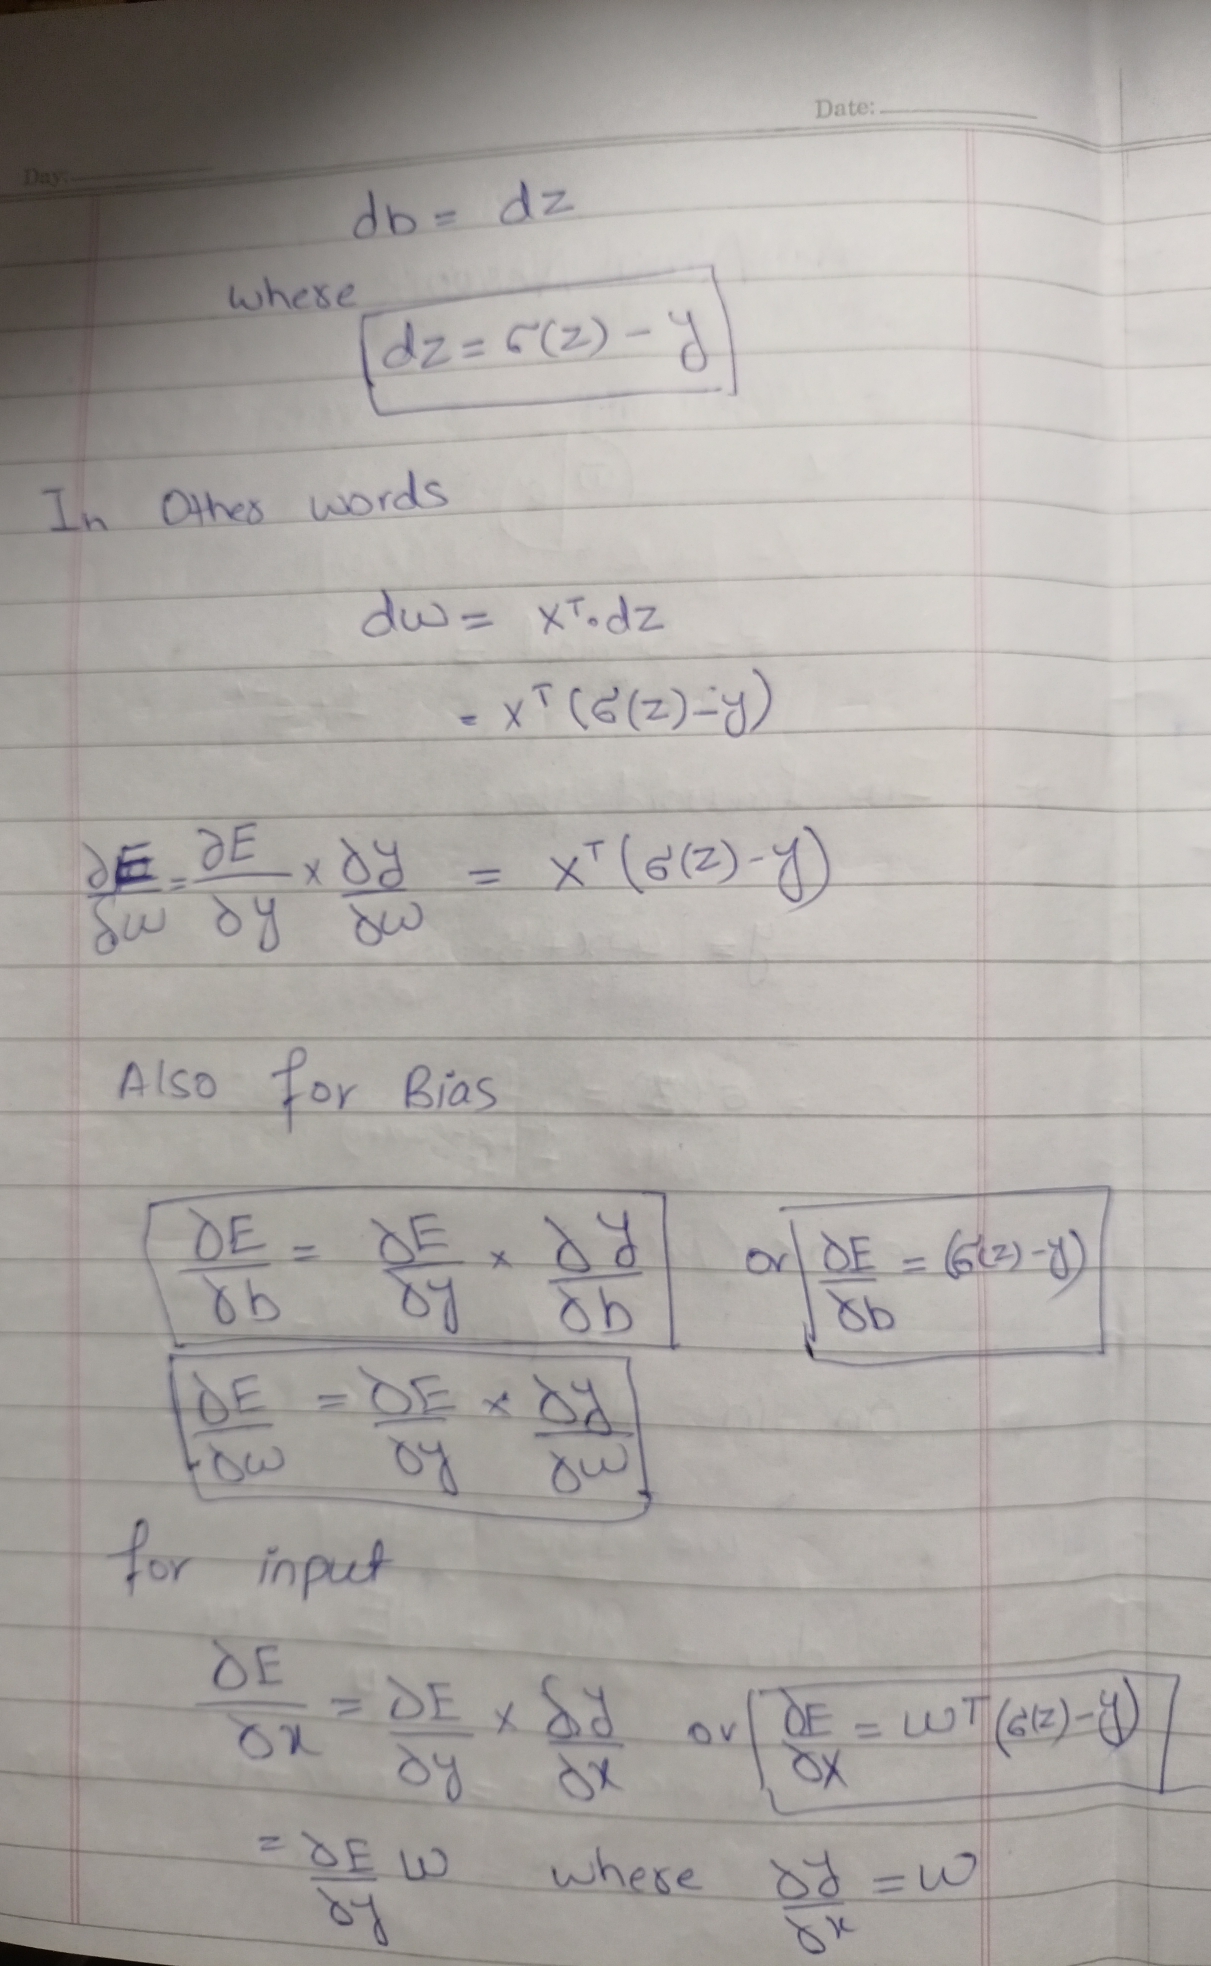 Date:
Day:
db = dz
where
dz = σ(z) - y
In Other words
dw = xᵀ.dz
= xᵀ(σ(z) - y)
∂E/∂w = ∂E/∂y × ∂y/∂w = xᵀ(σ(z) - y)
Also for Bias
∂E/∂b = ∂E/∂y × ∂y/∂b or ∂E/∂b = (σ(z) - y)
∂E/∂w = ∂E/∂y × ∂y/∂w
for input
∂E/∂x = ∂E/∂y × ∂y/∂x or ∂E/∂x = wᵀ(σ(z) - y)
= ∂E/∂y w where ∂y/∂x = w